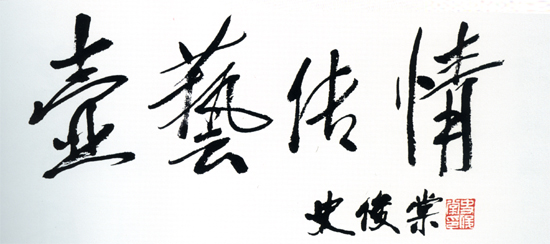 壶藝传情
史俊棠